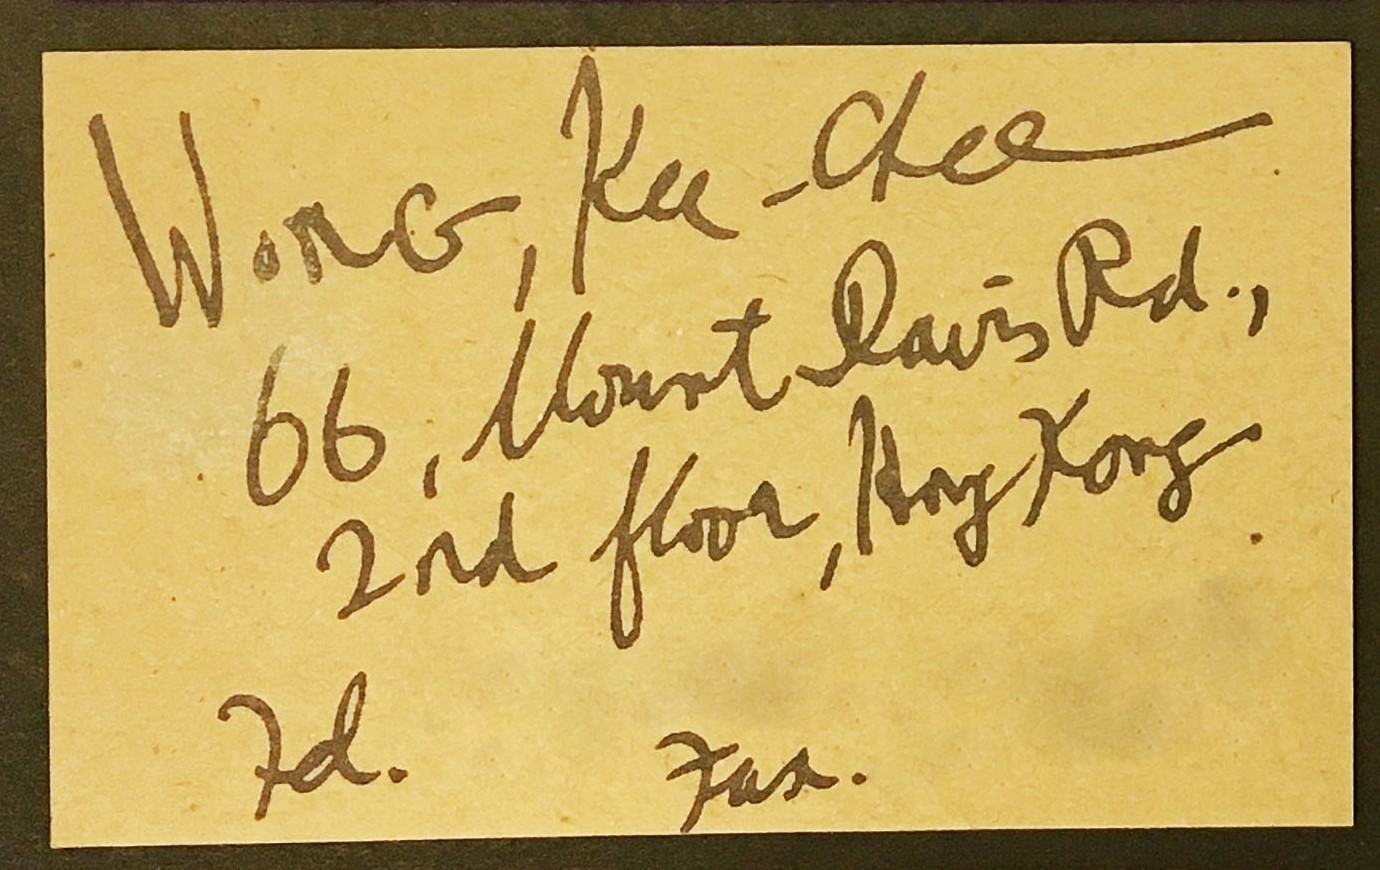 Wong, Kee-Chee
66, Mount Davis Rd.,
2nd floor, Hong Kong
Tel. Fax.